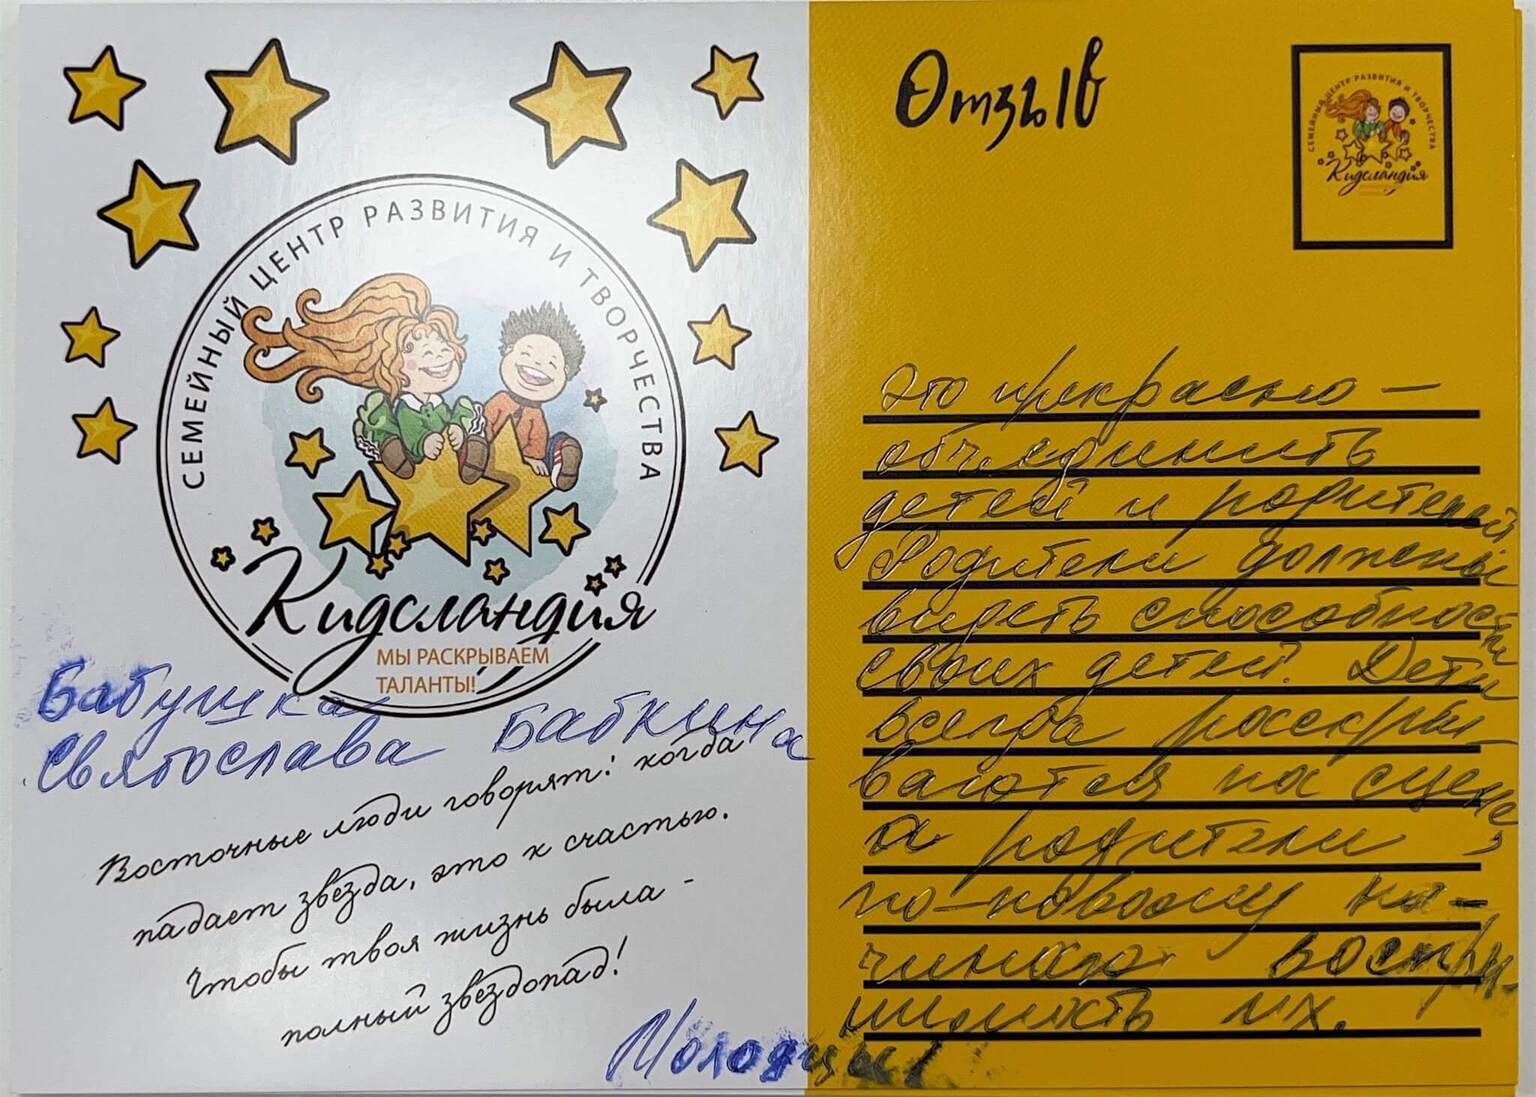 СЕМЕЙНЫЙ ЦЕНТР РАЗВИТИЯ И ТВОРЧЕСТВА
Кидсландия
МЫ РАСКРЫВАЕМ
ТАЛАНТЫ!
Бабушка
Святослава Бабкина
Восточные люди говорят: когда
падает звезда, это к счастью.
Чтобы твоя жизнь была -
полный звездопад!
Отзыв
СЕМЕЙНЫЙ ЦЕНТР РАЗВИТИЯ И ТВОРЧЕСТВА
Кидсландия
Это прекрасно —
объединить
детей и родителей
Родители должны
видеть способности
своих детей. Дети
всегда раскры-
ваются на сцене,
а родители
по-новому на-
чинают воспри-
нимать их.
Молодцы!